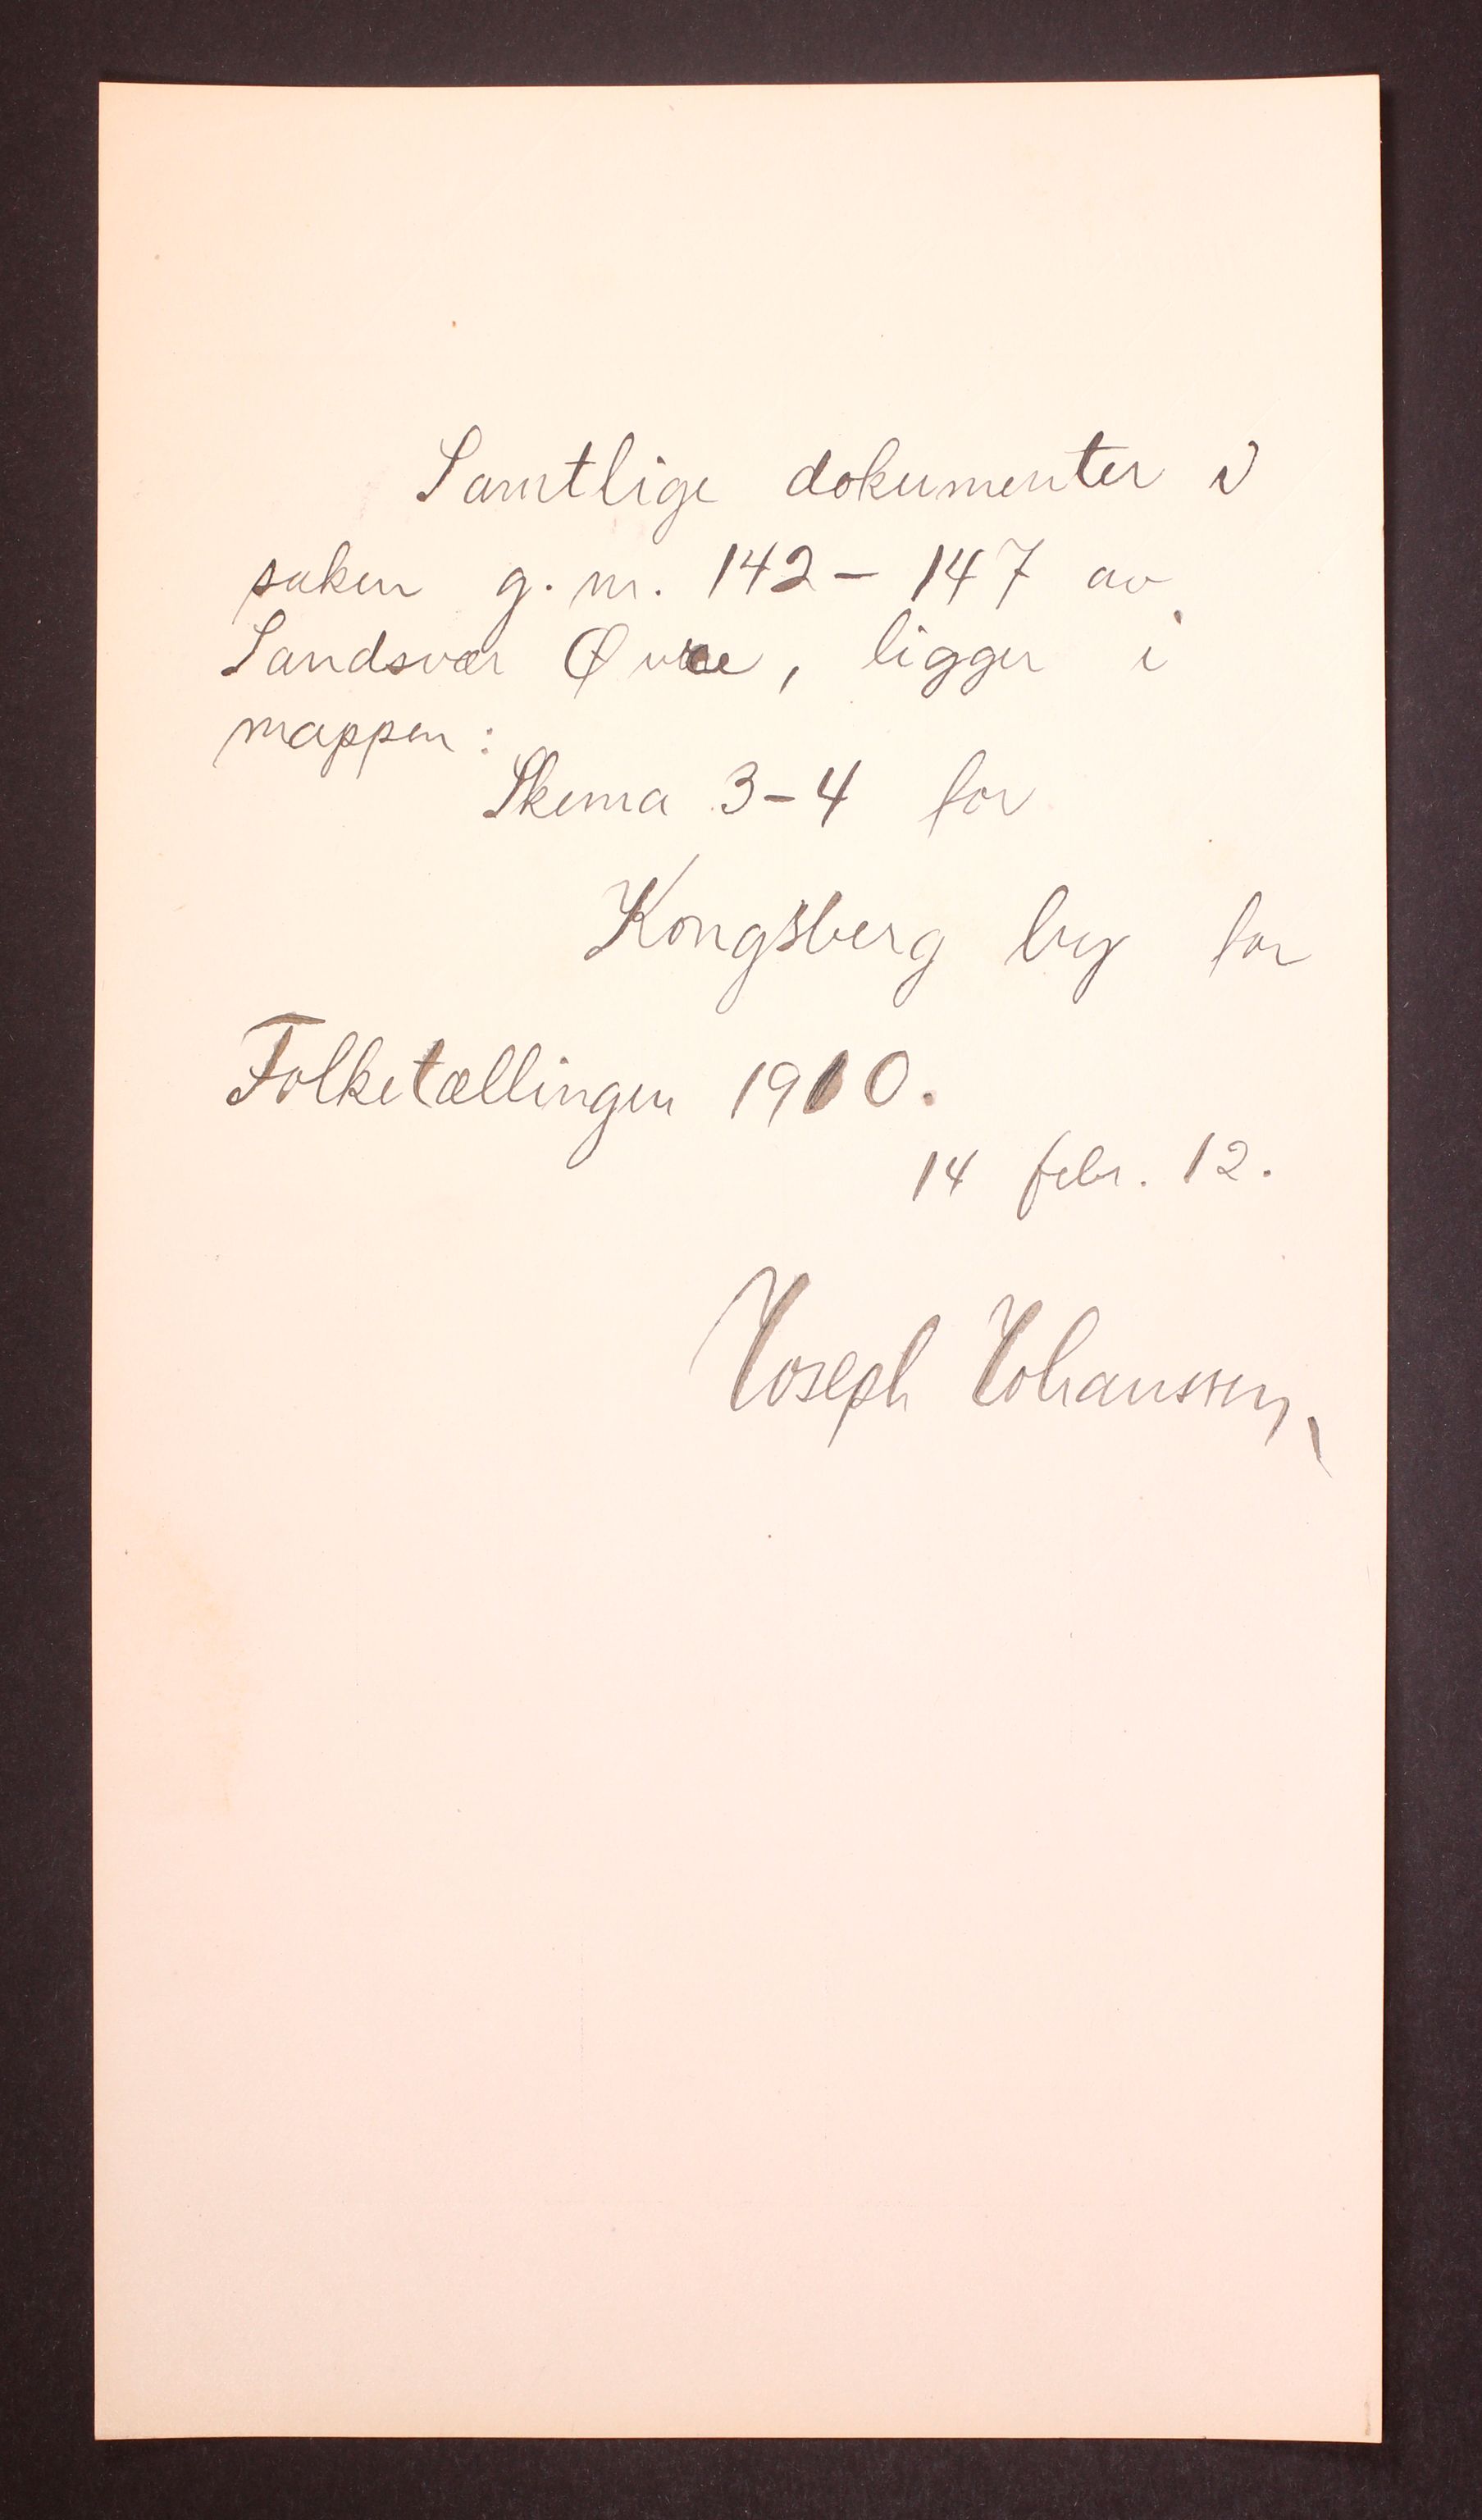 Samtlige dokumenter i
saken g. nr. 142 - 147 av
Sandsvær Øvre, ligger i
mappen:
Skema 3-4 for
Kongsberg by for
Folketællingen 1910.
14 febr. 12.
Joseph Johanssen,